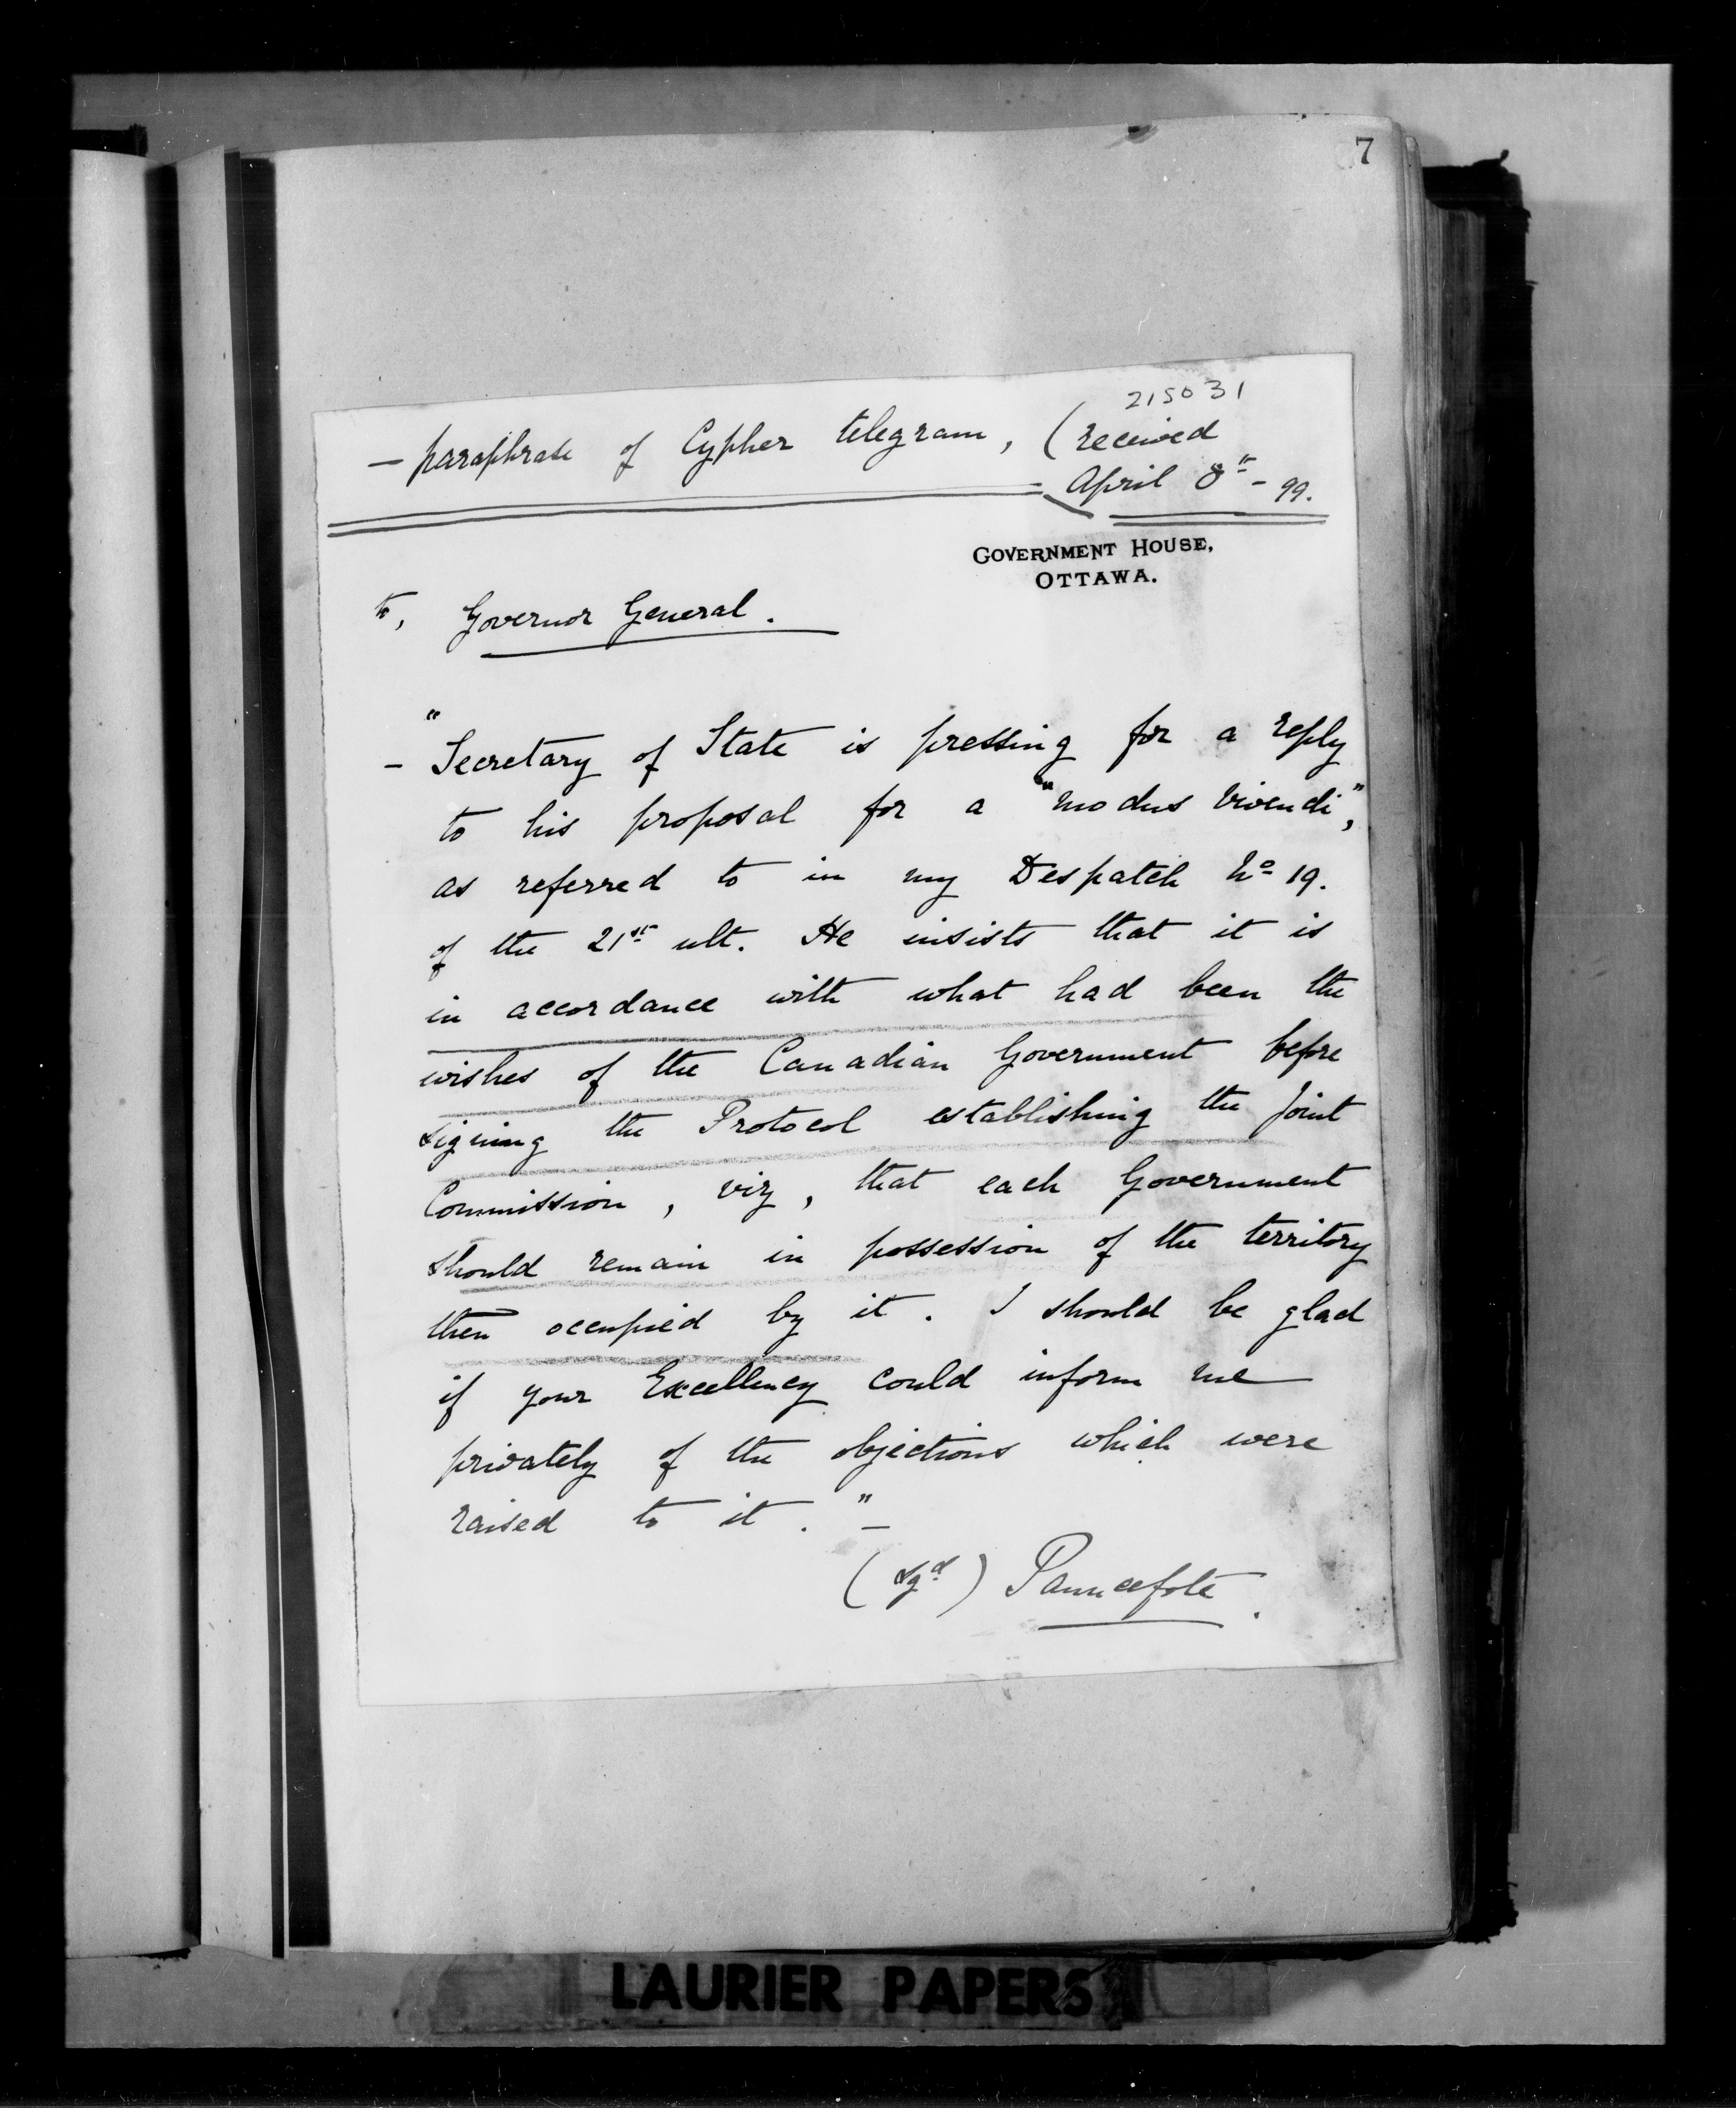 7
215031
— paraphrase of Cypher telegram, (received
April 8th - 99.
GOVERNMENT HOUSE,
OTTAWA.
to, Governor General.
- "Secretary of State is pressing for a reply
to his proposal for a "modus vivendi",
as referred to in my Despatch No 19.
of the 21st ult. He insists that it is
in accordance with what had been the
wishes of the Canadian Government before
signing the Protocol establishing the Joint
Commission, viz, that each Government
should remain in possession of the territory
then occupied by it. I should be glad
if your Excellency could inform me
privately of the objections which were
raised to it." —
(sgd) Pauncefote.
LAURIER PAPERS